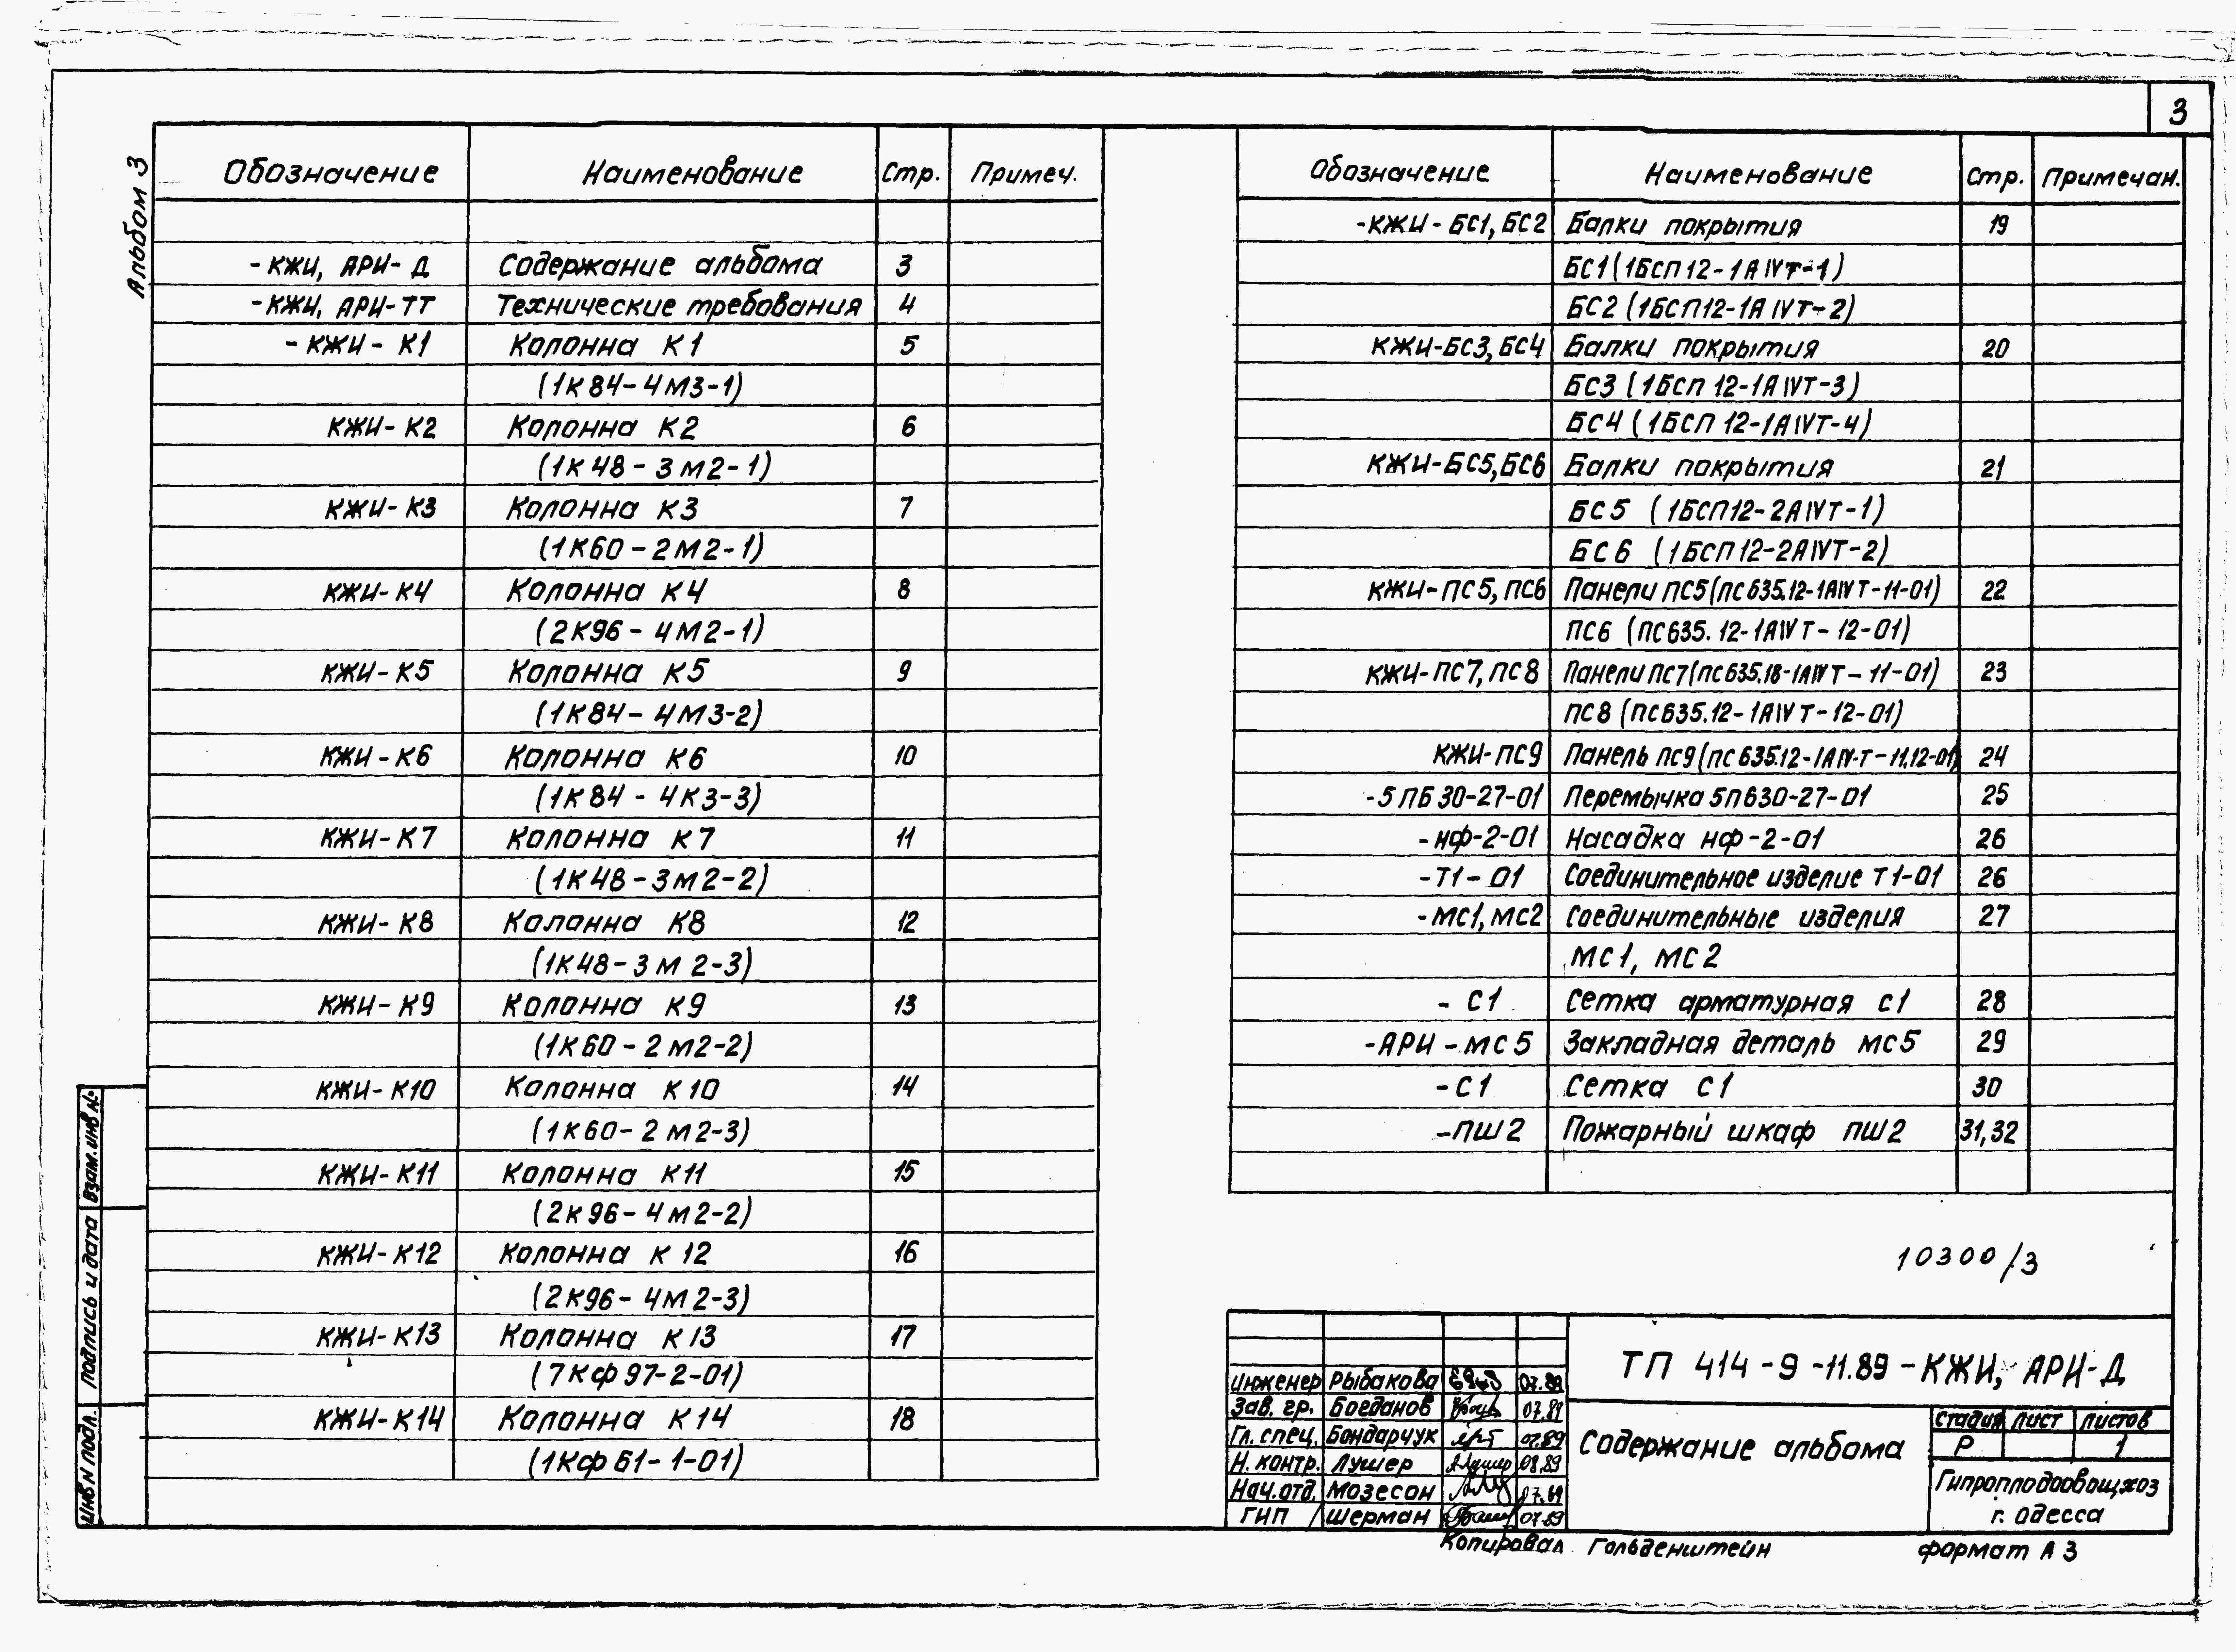 3
Альбом 3
Обозначение Наименование Стр. Примеч.
-КЖИ, АРИ-Д Содержание альбома 3
-КЖИ, АРИ-ТТ Технические требования 4
-КЖИ-К1 Колонна К1 5
(1К84-4М3-1)
КЖИ-К2 Колонна К2 6
(1К48-3М2-1)
КЖИ-К3 Колонна К3 7
(1К60-2М2-1)
КЖИ-К4 Колонна К4 8
(2К96-4М2-1)
КЖИ-К5 Колонна К5 9
(1К84-4М3-2)
КЖИ-К6 Колонна К6 10
(1К84-4К3-3)
КЖИ-К7 Колонна К7 11
(1К48-3М2-2)
КЖИ-К8 Колонна К8 12
(1К48-3М2-3)
КЖИ-К9 Колонна К9 13
(1К60-2М2-2)
КЖИ-К10 Колонна К10 14
(1К60-2М2-3)
КЖИ-К11 Колонна К11 15
(2К96-4М2-2)
КЖИ-К12 Колонна К12 16
(2К96-4М2-3)
КЖИ-К13 Колонна К13 17
(7КФ97-2-01)
КЖИ-К14 Колонна К14 18
(1КФ61-1-01)
Обозначение Наименование Стр. Примечан.
-КЖИ-БС1, БС2 Балки покрытия 19
БС1 (1БСП12-1АIVТ-1)
БС2 (1БСП12-1АIVТ-2)
КЖИ-БС3, БС4 Балки покрытия 20
БС3 (1БСП12-1АIVТ-3)
БС4 (1БСП12-1АIVТ-4)
КЖИ-БС5, БС6 Балки покрытия 21
БС5 (1БСП12-2АIVТ-1)
БС6 (1БСП12-2АIVТ-2)
КЖИ-ПС5, ПС6 Панели ПС5 (ПС635.12-1АIVТ-11-01) 22
ПС6 (ПС635.12-1АIVТ-12-01)
КЖИ-ПС7, ПС8 Панели ПС7 (ПС635.18-1АIVТ-11-01) 23
ПС8 (ПС635.12-1АIVТ-12-01)
КЖИ-ПС9 Панель ПС9 (ПС635.12-1АIV-Т-11,12-01) 24
-5ПБ30-27-01 Перемычка 5П630-27-01 25
-НФ-2-01 Насадка НФ-2-01 26
-Т1-01 Соединительное изделие Т1-01 26
-МС1, МС2 Соединительные изделия 27
МС1, МС2
-С1 Сетка арматурная С1 28
-АРИ-МС5 Закладная деталь МС5 29
-С1 Сетка С1 30
-ПШ2 Пожарный шкаф ПШ2 31,32
10300/3
Инженер Рыбакова 07.89
Зав. гр. Богданов 07.89
Гл. спец. Бондарчук 07.89
Н. контр. Лушер 08.89
Нач. отд. Мозесон 07.89
ГИП Шерман 07.89
ТП 414-9-11.89-КЖИ, АРИ-Д
Содержание альбома
Стадия Лист Листов
Р 1
Гипроплодоовощхоз
г. Одесса
Копировал Гольденштейн формат А3
Инв N подл. Подпись и дата Взам. инв №